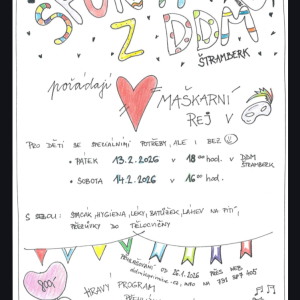 Z DDM
ŠTRAMBERK
pořádají
MAŠKARNÍ
REJ V
PRO DĚTI SE SPECIÁLNÍMI POTŘEBY, ALE I BEZ
• PÁTEK 13.2.2026 V 18⁰⁰ hod. V DDM
ŠTRAMBERK
• SOBOTA 14.2.2026 V 16⁰⁰ hod.
S SEBOU: SPACÁK, HYGIENA, LÉKY, BATŮŽEK, LÁHEV NA PITÍ,
PŘEZŮVKY DO TĚLOCVIČNY
PŘIHLAŠOVÁNÍ OD 26.1.2026 PŘES WEB
INFO NA 731 307 105
HRAVÝ PROGRAM